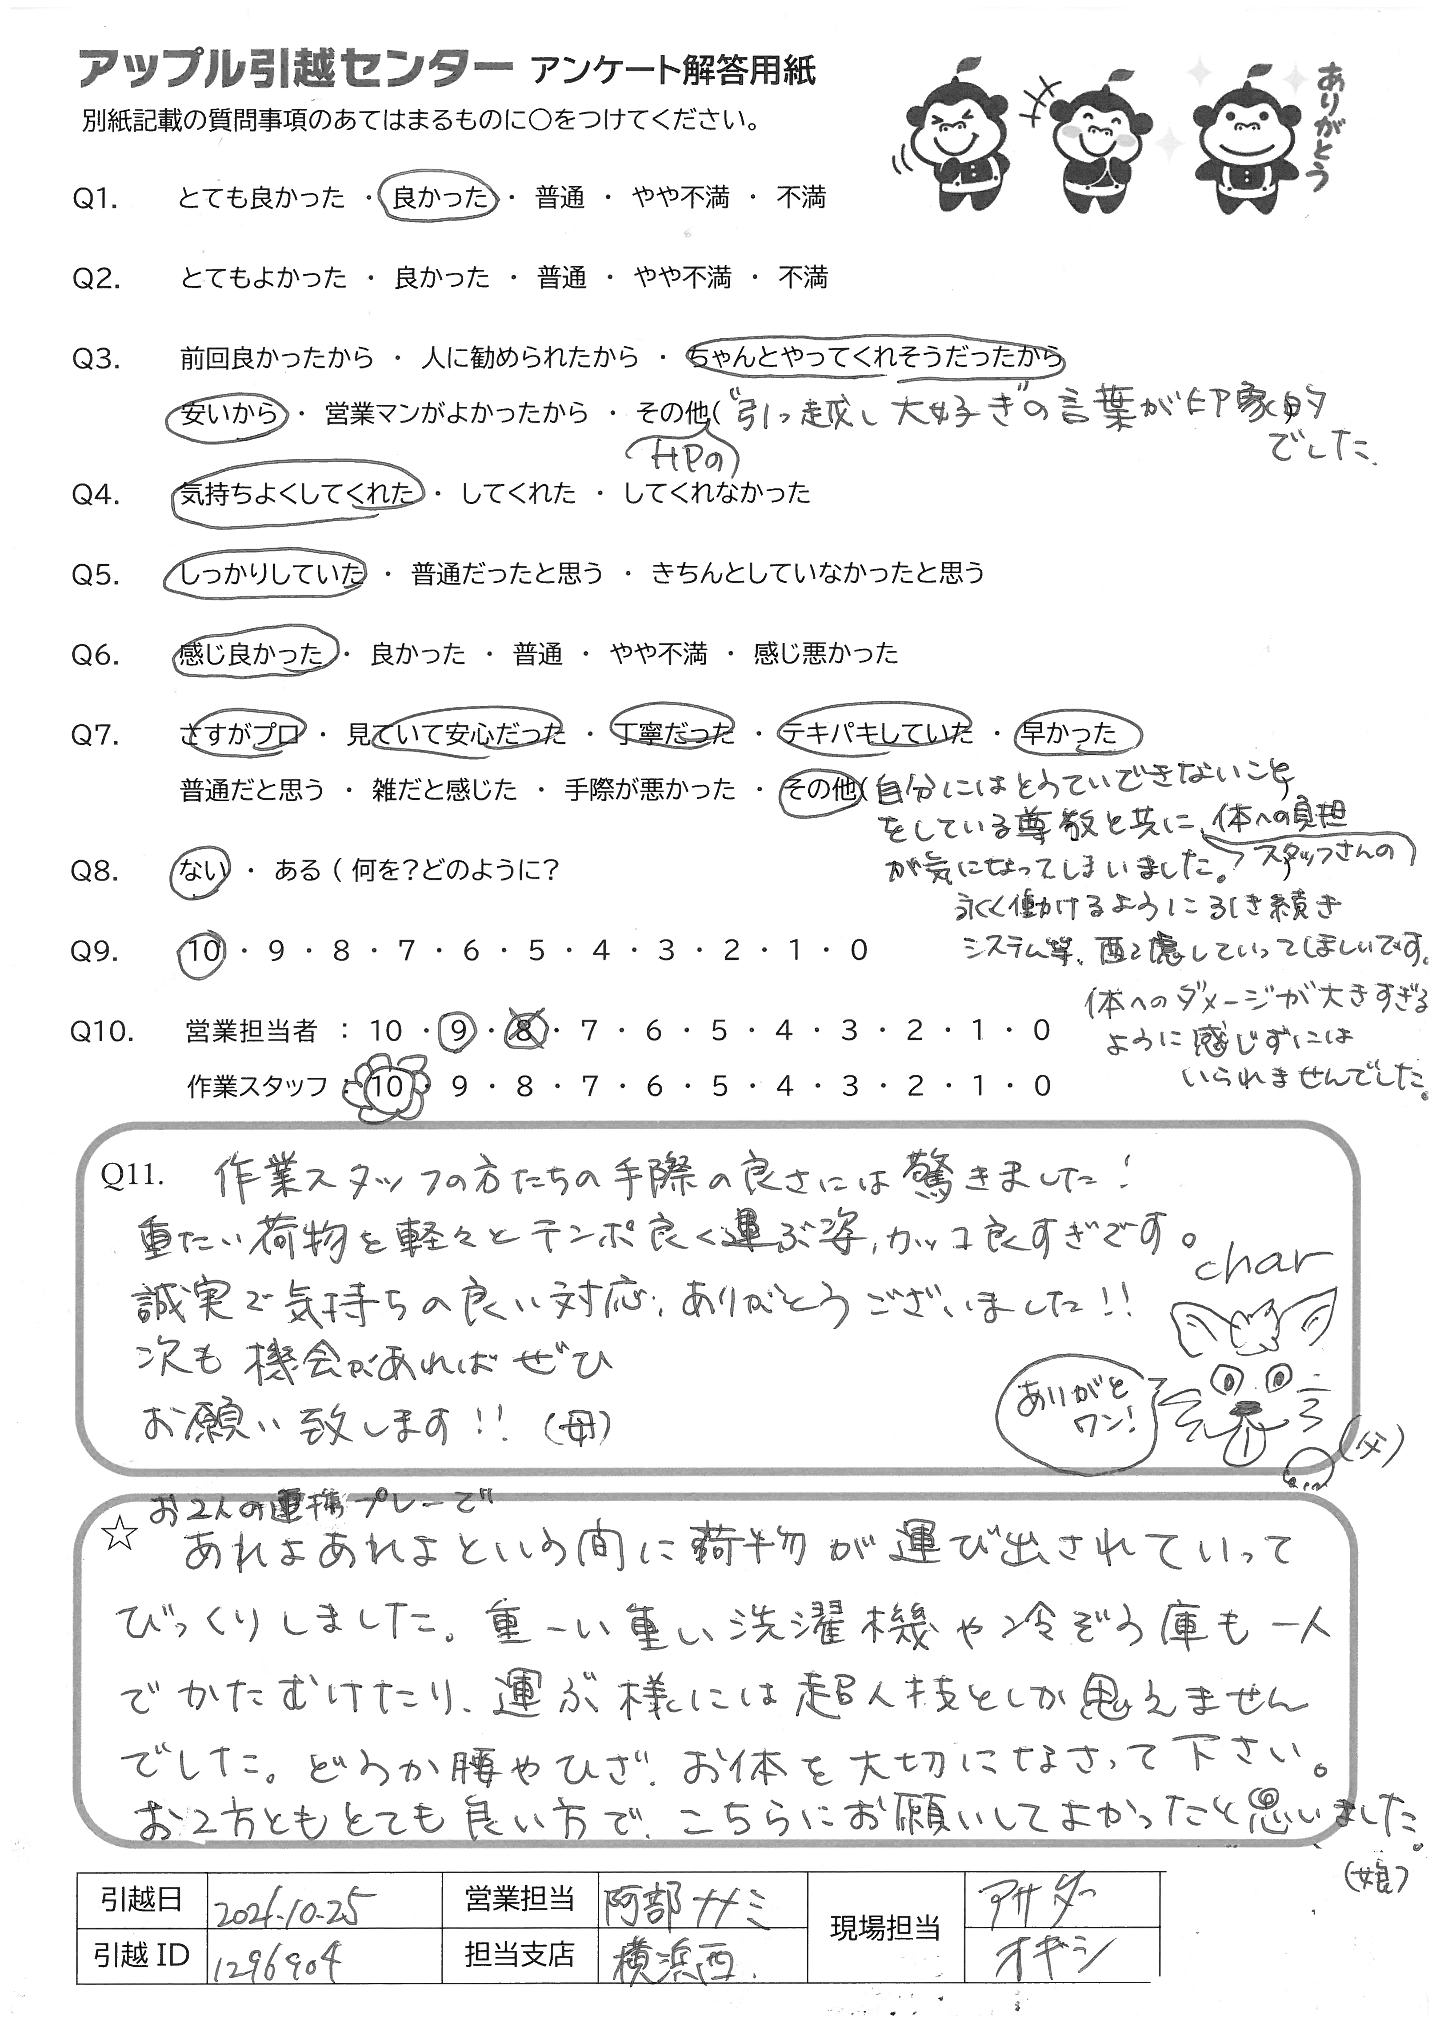 アップル引越センター アンケート解答用紙
別紙記載の質問事項のあてはまるものに○をつけてください。
ありがとう
Q1. とても良かった ・ 良かった ・ 普通 ・ やや不満 ・ 不満
Q2. とてもよかった ・ 良かった ・ 普通 ・ やや不満 ・ 不満
Q3. 前回良かったから ・ 人に勧められたから ・ ちゃんとやってくれそうだったから
安いから ・ 営業マンがよかったから ・ その他( "引っ越し大好き"の言葉が印象的
でした.
HPの
Q4. 気持ちよくしてくれた ・ してくれた ・ してくれなかった
Q5. しっかりしていた ・ 普通だったと思う ・ きちんとしていなかったと思う
Q6. 感じ良かった ・ 良かった ・ 普通 ・ やや不満 ・ 感じ悪かった
Q7. さすがプロ ・ 見ていて安心だった ・ 丁寧だった ・ テキパキしていた ・ 早かった
普通だと思う ・ 雑だと感じた ・ 手際が悪かった ・ その他( 自分にはとうていできないこと
をしている尊敬と共に、体への負担
が気になってしまいました。 スタッフさんの
永く働けるように引き続き
システム等、配慮していってほしいです。
体へのダメージが大きすぎる
ように感じずには
いられませんでした。
Q8. ない ・ ある ( 何を?どのように?
Q9. 10 ・ 9 ・ 8 ・ 7 ・ 6 ・ 5 ・ 4 ・ 3 ・ 2 ・ 1 ・ 0
Q10. 営業担当者 : 10 ・ 9 ・ 8 ・ 7 ・ 6 ・ 5 ・ 4 ・ 3 ・ 2 ・ 1 ・ 0
作業スタッフ : 10 ・ 9 ・ 8 ・ 7 ・ 6 ・ 5 ・ 4 ・ 3 ・ 2 ・ 1 ・ 0
Q11. 作業スタッフの方たちの手際の良さには驚きました!
重たい荷物を軽々とテンポ良く運ぶ姿、カッコ良すぎです。
誠実で気持ちの良い対応、ありがとうございました!!
次も機会があればぜひ
お願い致します!! (母)
char
ありがと
ワン!
(父)
お2人の連携プレーで
☆ あれよあれよという間に荷物が運び出されていって
びっくりしました。重ーい重い洗濯機や冷ぞう庫も一人
でかたむけたり、運ぶ様には超人技としか思えません
でした。どうか腰やひざ、お体を大切になさって下さい。
お2方ともとても良い方で、こちらにお願いしてよかったと思いました。
(娘)
引越日 2021-10-25 営業担当 阿部ナナミ 現場担当 アサダ
引越ID 1296904 担当支店 横浜西. オギシ